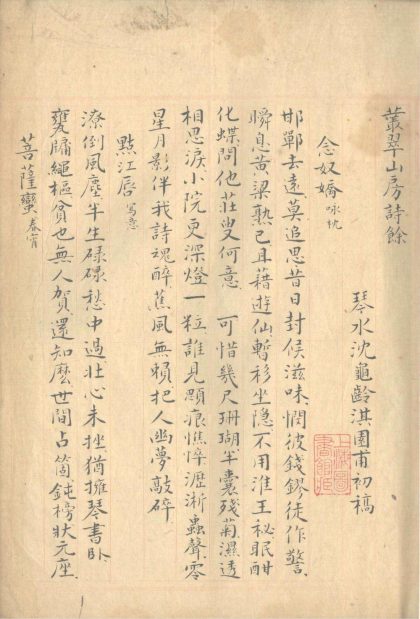 叢翠山房詩餘
琴水沈龜齡淇園甫初稿
念奴嬌 咏枕
邯鄲去遠莫追思昔日封侯滋味憫彼錢鏐徒作警
瞬息黃粱熟已且藉遊仙暫移坐隱不用淮王秘眠酣
化蝶問他莊叟何意 可惜幾尺珊瑚半囊殘菊濕透
相思淚小院更深燈一粒誰見顋痕憔悴瀝淅蟲聲零
星月影伴我詩魂醉蕉風無賴把人幽夢敲碎
點江唇 寫意
潦倒風塵半生碌碌愁中過壯心未挫猶擁琴書臥
甕牖繩樞貧也無人賀還知麽世間占箇鈍榜狀元座
菩薩蠻 春宵
上海圖書館藏